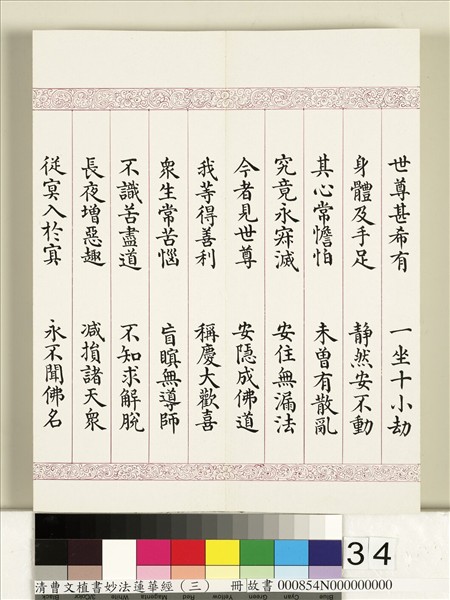 世尊甚希有　一坐十小劫
身體及手足　静然安不動
其心常憺怕　未曾有散亂
究竟永寂滅　安住無漏法
今者見世尊　安隱成佛道
我等得善利　稱慶大歡喜
衆生常苦惱　盲瞑無導師
不識苦盡道　不知求解脫
長夜增惡趣　减損諸天衆
從冥入於冥　永不聞佛名
34
清曹文植書妙法蓮華經（三）　冊 故書 000854N000000000
Black 3/Color White Magenta Red Yellow Green Cyan Blue